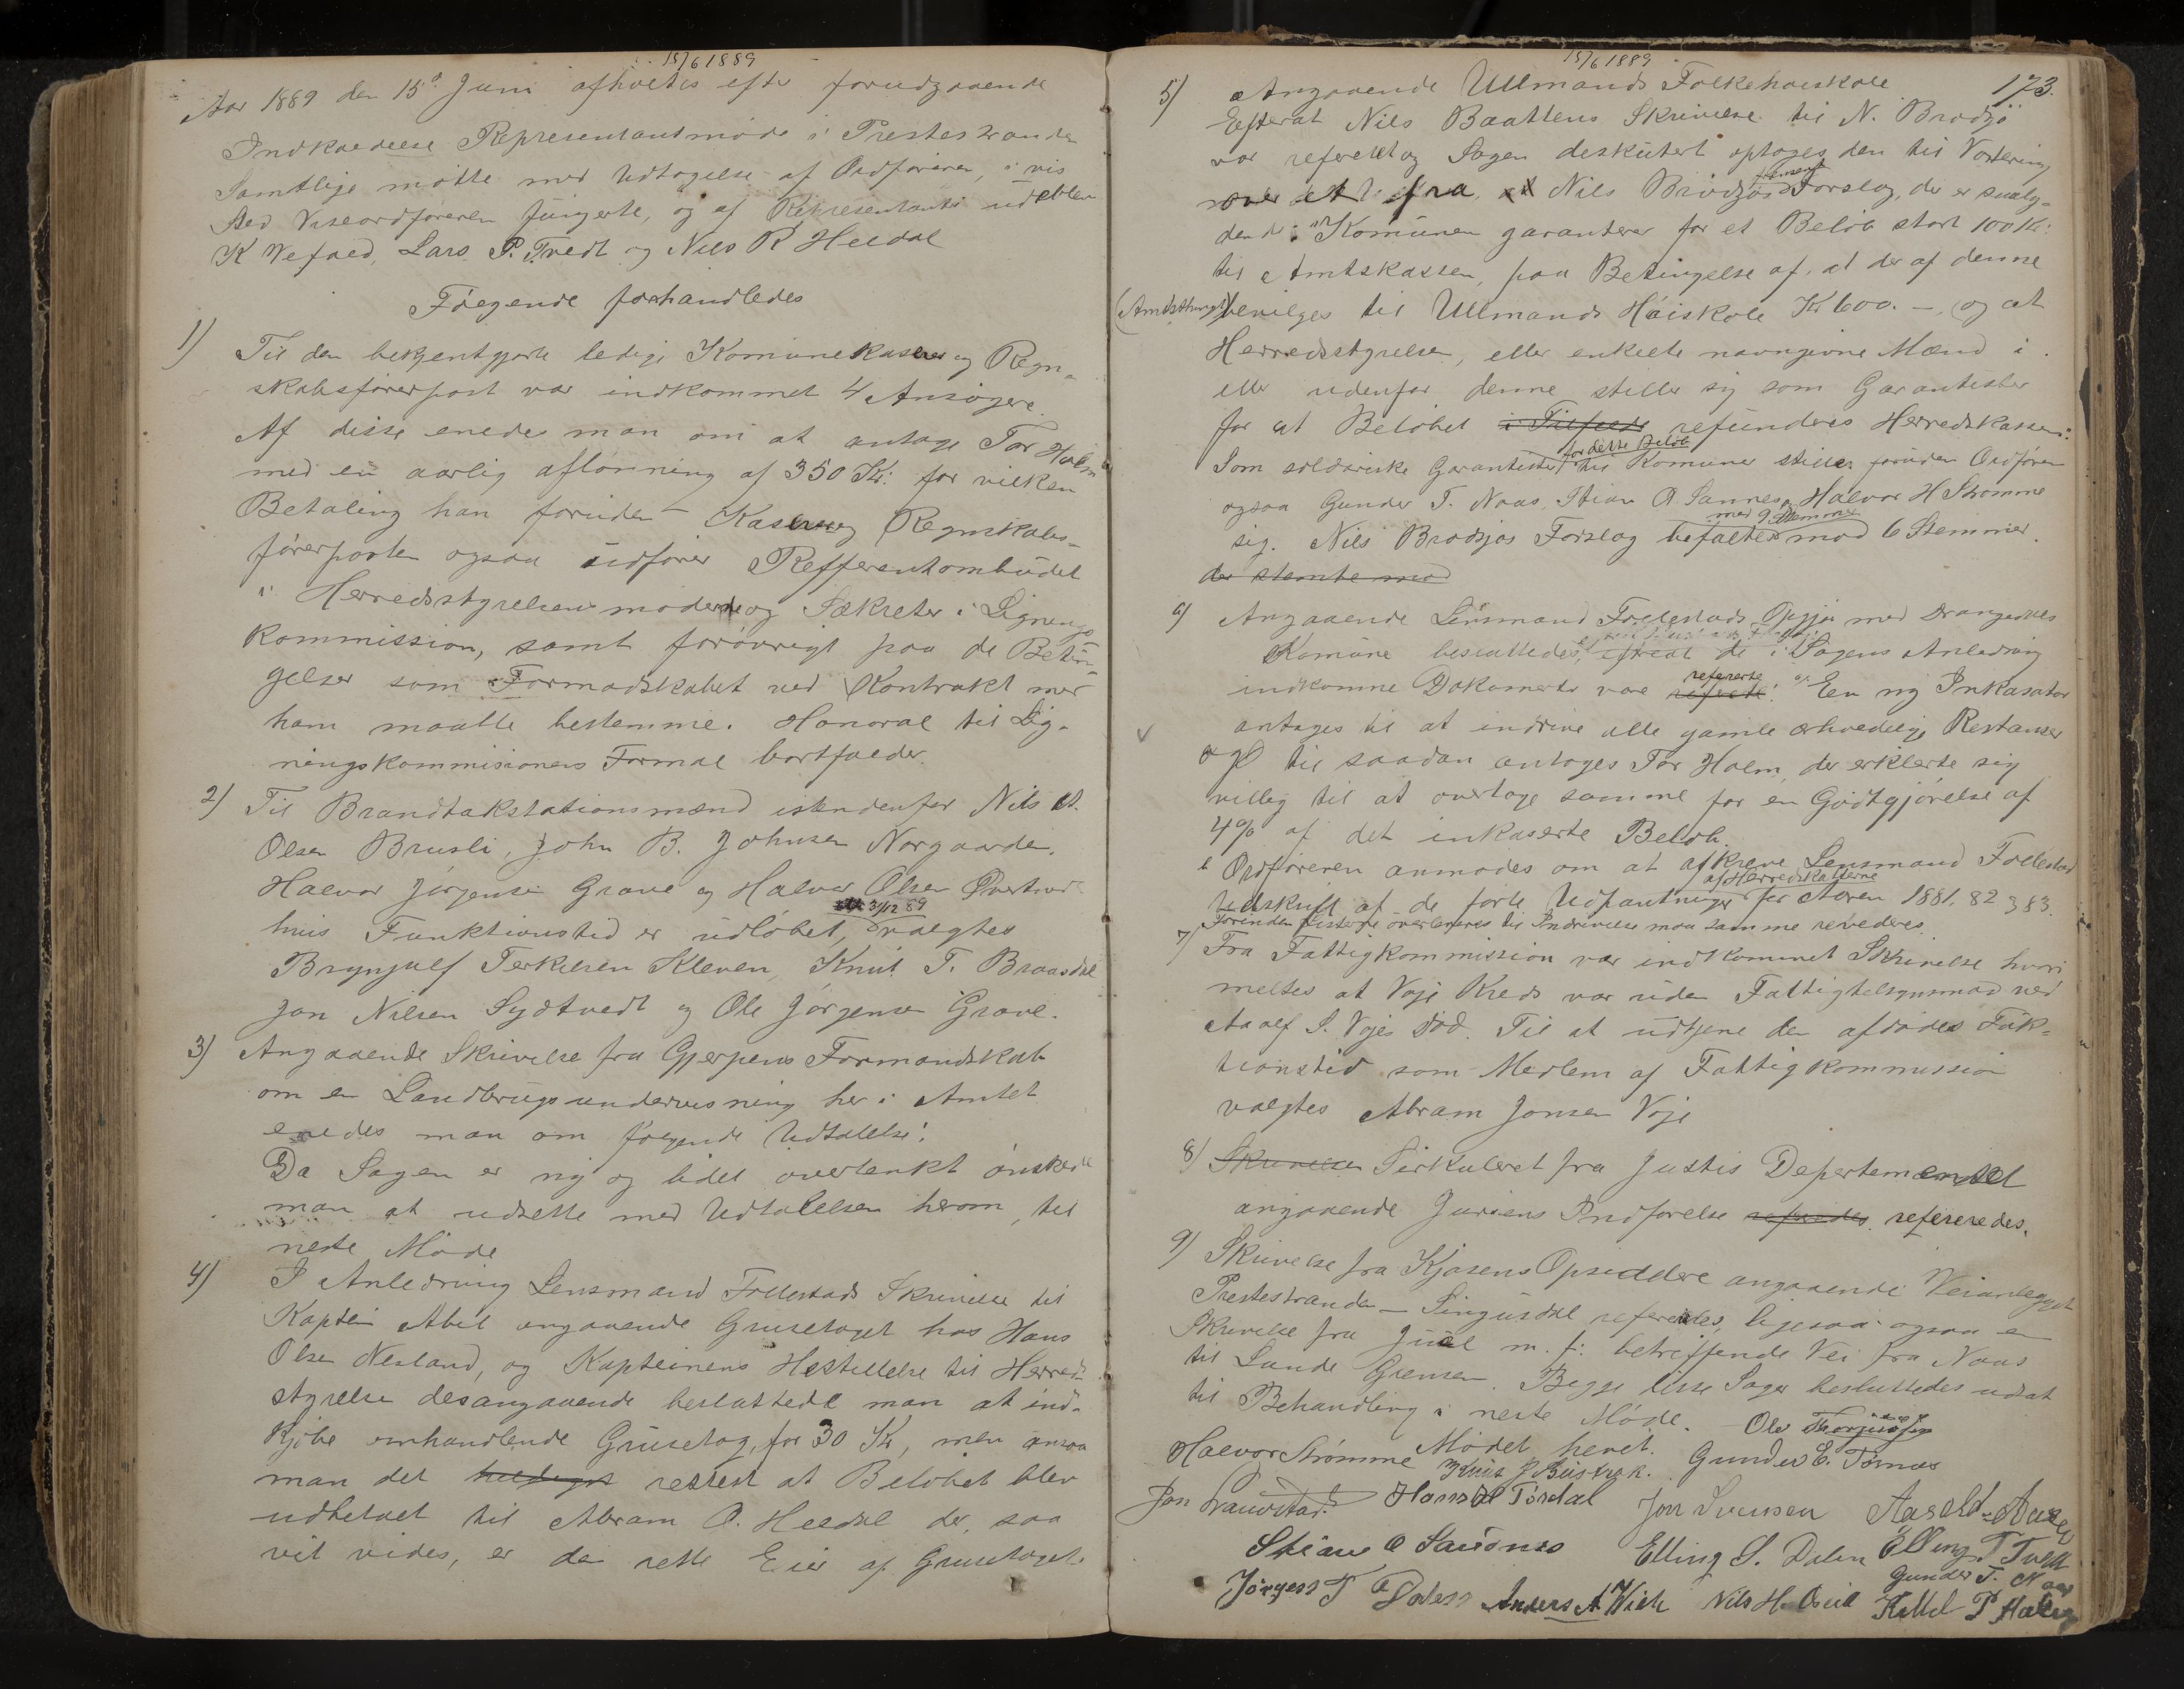 15/6 1889
Aar 1889 den 15de Juni afholtes efter forudgaaende
Indkaldelse Representantmøde i Prestestranden
Samtlige møtte med Udtagelse af Ordføreren, i vis
Sted Viseordføreren fungerte, og af Representanter udeblev
K Wefald, Lars P. Tvedt og Nils R Heldal
Følgende forhandledes
1) Til den bekjentgjorte ledige Komunekaserer og Regn-
skabsførerpost var indkommet 4 Ansøgere.
Af disse enedes man om at antage Tor Holm
med en aarlig aflønning af 350 Kr: for vilken
Betaling han foruden Kaserer og Regnskabs-
førerposten ogsaa udfører Refferentombudet
i Herredsstyrelsens møder og Sækretær i Lignings
kommission, samt forøvrigt paa de Betin-
gelser som Formadskabet ved Kontrakt med
ham maatte bestemme. Honoral til Lig-
ningskommisionens Formal bortfalder.
2) Til Brandtakstationsmænd istendenfor Nils A.
Olsen Brusli, John B. Johnsen Norgaarden,
Halvor Jørgensen Grave og Halvor Olsen Øvertved
31/12 89
hvis Funktionstid er udløbet, valgtes
Brynjulf Terkelsen Kleven, Knut T. Braasdal
Jon Nilsen Sydtvedt og Ole Jørgensen Grave.
3) Angaaende Skrivelse fra Gjerpens Formandskab
om en Landbrugsundervisning her i Amtet
enedes man om følgende Udtalelse:
Da Sagen er ny og lidet overtenkt ønskede
man at udsette med Udtalelsen herom, til
neste Møde
4) I Anledning Lensmand Follestads Skrivelse til
Kaptein Abel angaaende Grusetaget hos Hans
Olsen Nesland, og Kapteinens Hestillelse til Herreds
styrelse desangaaende besluttede man at ind-
kjøbe omhandlende Grusetag, for 30 Kr, men ansaa
man det rettest at Beløbet blev
udbetalt til Abram O. Heldal der, saa
vit vides, er den rette Eier af Grusetaget.
15/6 1889
173.
5) Angaaende Ullmands Folkehøiskole
Efterat Nils Baattens Skrivelse til N. Brødsjø
var referert og Sagen deskutert optoges den til Votering
over et fra Nils Brødsjø Forslag, der er saaly-
dende: "Komunen garanterer for et Beløb stort 100 Kr:
til Amtskassen, paa Betingelse af, at der af denne
(Amtsthinget) bevilges til Ullmands Høiskole Kr 600. –, og at
Herredsstyrelsen, eller enkelte navngivne Mænd i
eller udenfor denne stiller sig som Garantister
for at Beløbet i Tilfælde refunderes Herredskassen:
for dette Beløb
Som solidariske Garantister til Komunen stiller foruden Ordføren
ogsaa Gunder T. Naas, Stian O. Sannes og Halvor H Strømme
med 9 Stemmer
sig. Nils Brødsjøs Forslag befaltes mod 6 Stemmer.
der stemte mod
6) Angaaende Lensmand Follestads Opgjør med Drangedals
Komune besluttedes, efterat de i Sagens Anledning
refererte
indkomne Dokumenter vare referert: a: En ny Inkasator
antages til at inddrive alle gamle erholdelige Restanser
og til saadan antages Tor Holm, der erklerte sig
villig til at overtage samme for en Godtgjørelse af
4% af det inkaserte Beløb.
b Ordføreren anmodes om at afkreve Lensmand Follestad
af Herredskatterne
Udskrift af de førte Udpantninger for Aaren 1881, 82 & 83.
Forinden Listerne overleveres til Inddrivelse maa samme revederes.
7) Fra Fattigkommission var indkommet Skrivelse hvori
meltes at Voje Kreds var uden Fattigtilsynsmand ved
Aaolf S. Vojes Død. Til at udtjene den afdødes Fuk-
tionstid som Medlem af Fattigkommission
valgtes Abram Jonsen Voje
8) Skrivelse Sirkuleret fra Justis Departementet
angaaende Juriens Indførelse refereredes.
9) Skrivelse fra Kjøsens Opsiddere angaaende Veianlegget
Prestestranden – Lingusdal refereredes, ligesaa ogsaa en
Skrivelse fra Juel m. fl: betreffende Vei fra Naas
til Lunde Grensen. Begge disse Sager besluttedes udsat
til Behandling i neste Møde.
Mødet hevet.
Halvor Strømme
Gunder E. Tørnes
Hans Tørdal
Jon Svensen
Stian O Sannes
Elling S. Dalen
Elling T Tvedt
Gunder T. Naas
Anders A Wiek
Kittel P Haler